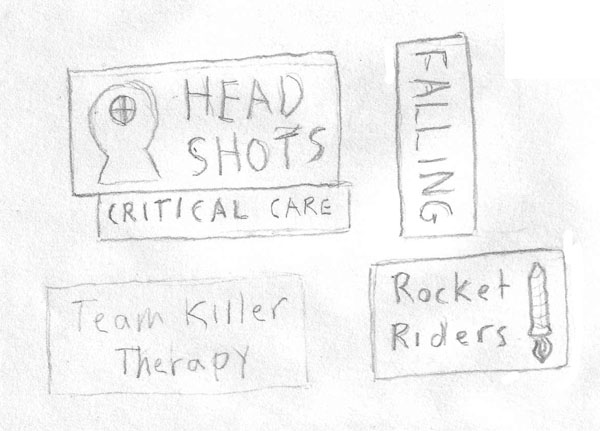 HEAD
SHOTS
CRITICAL CARE
FALLING
Team Killer
Therapy
Rocket
Riders